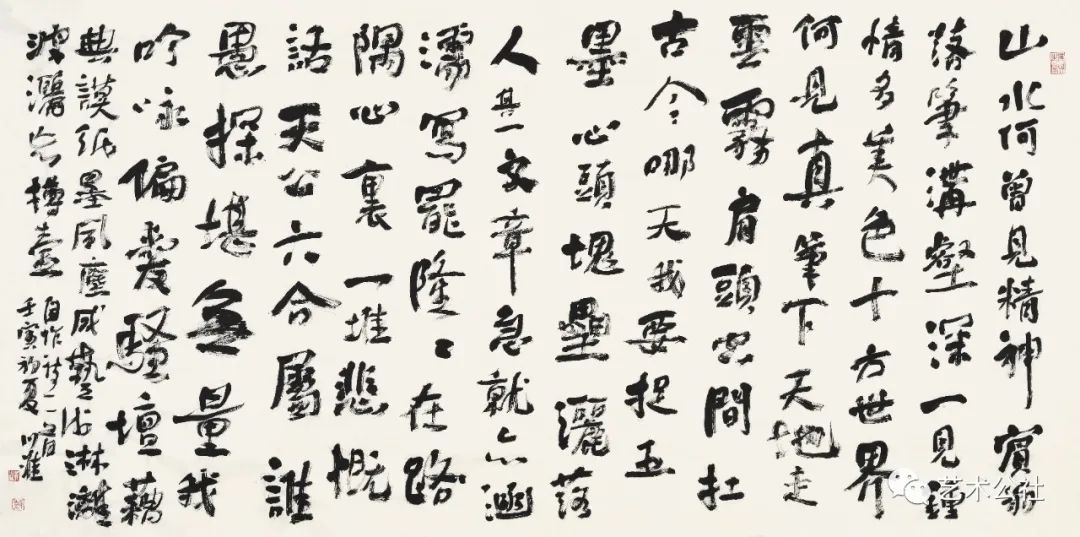 山水何曾見精神賓翁
落筆溝壑深一見鍾
情多美色十方世界
何見真筆下天地走
雲霧肩頭世間扛
古今〻哪天我要捉
墨心頭塊壘灑落
人其一文章急就亦涵
濡寫罷隆〻在路
隅心裏一堆悲慨
話天公六合屬誰
愚探堪無量我
吟咏偏愛騷壇藕
典謨紙墨風塵成藝術淋漓
潑灑樽壺自作詩二首
壬寅初夏
艺术公社